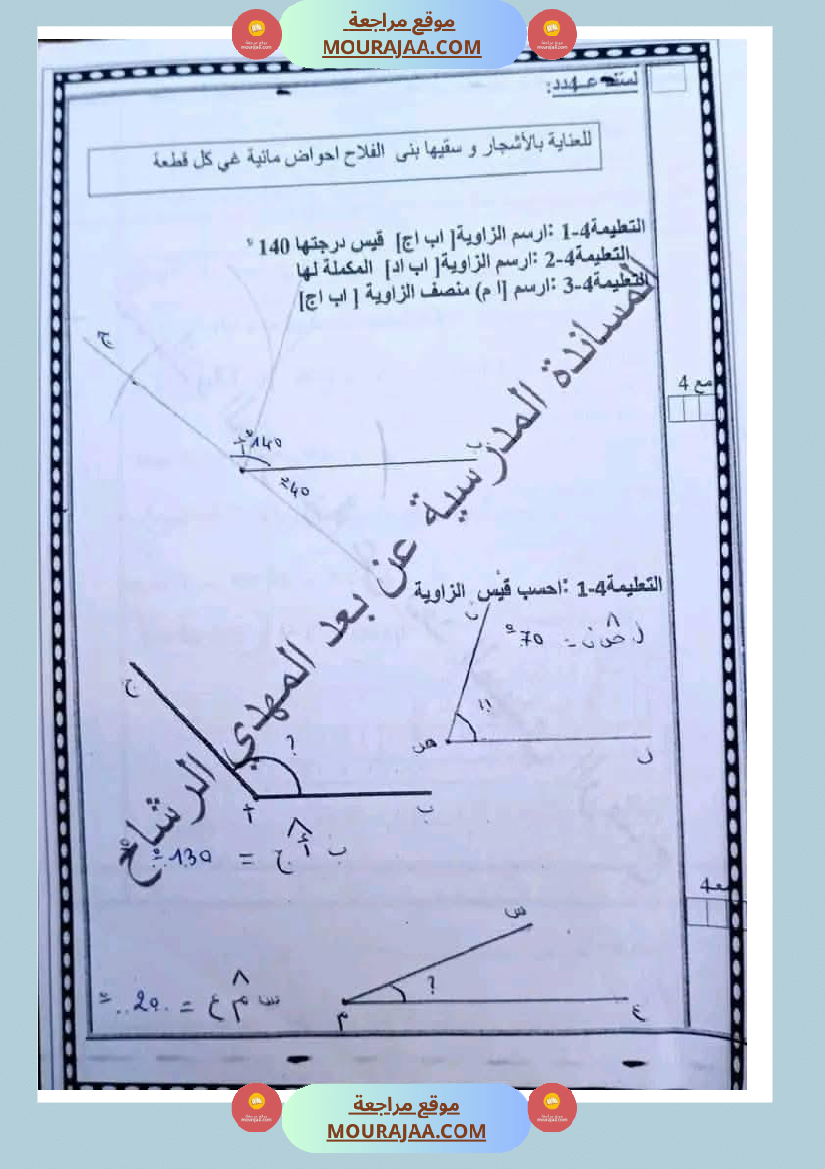 موقع مراجعة
MOURAJAA.COM
للعناية بالأشجار و سقيها بنى الفلاح احواض مائية غي كل قطعة
التعليمة4-1 :ارسم الزاوية[ اب اج] قيس درجتها 140 °
التعليمة4-2 :ارسم الزاوية[ اب اد] المكملة لها
التعليمة4-3 :ارسم [ا م) منصف الزاوية [ اب اج]
ج
مع 4
140°
ب
40
التعليمة4-1 :احسب قيس الزاوية
ن
= 70°
ج
؟
ب
ل
ب أ ج = 130°
المساندة المدرسية عن بعد المهدي الرشاح
مع4
س
؟
س م ع = ..20..°
م
ع
موقع مراجعة
MOURAJAA.COM